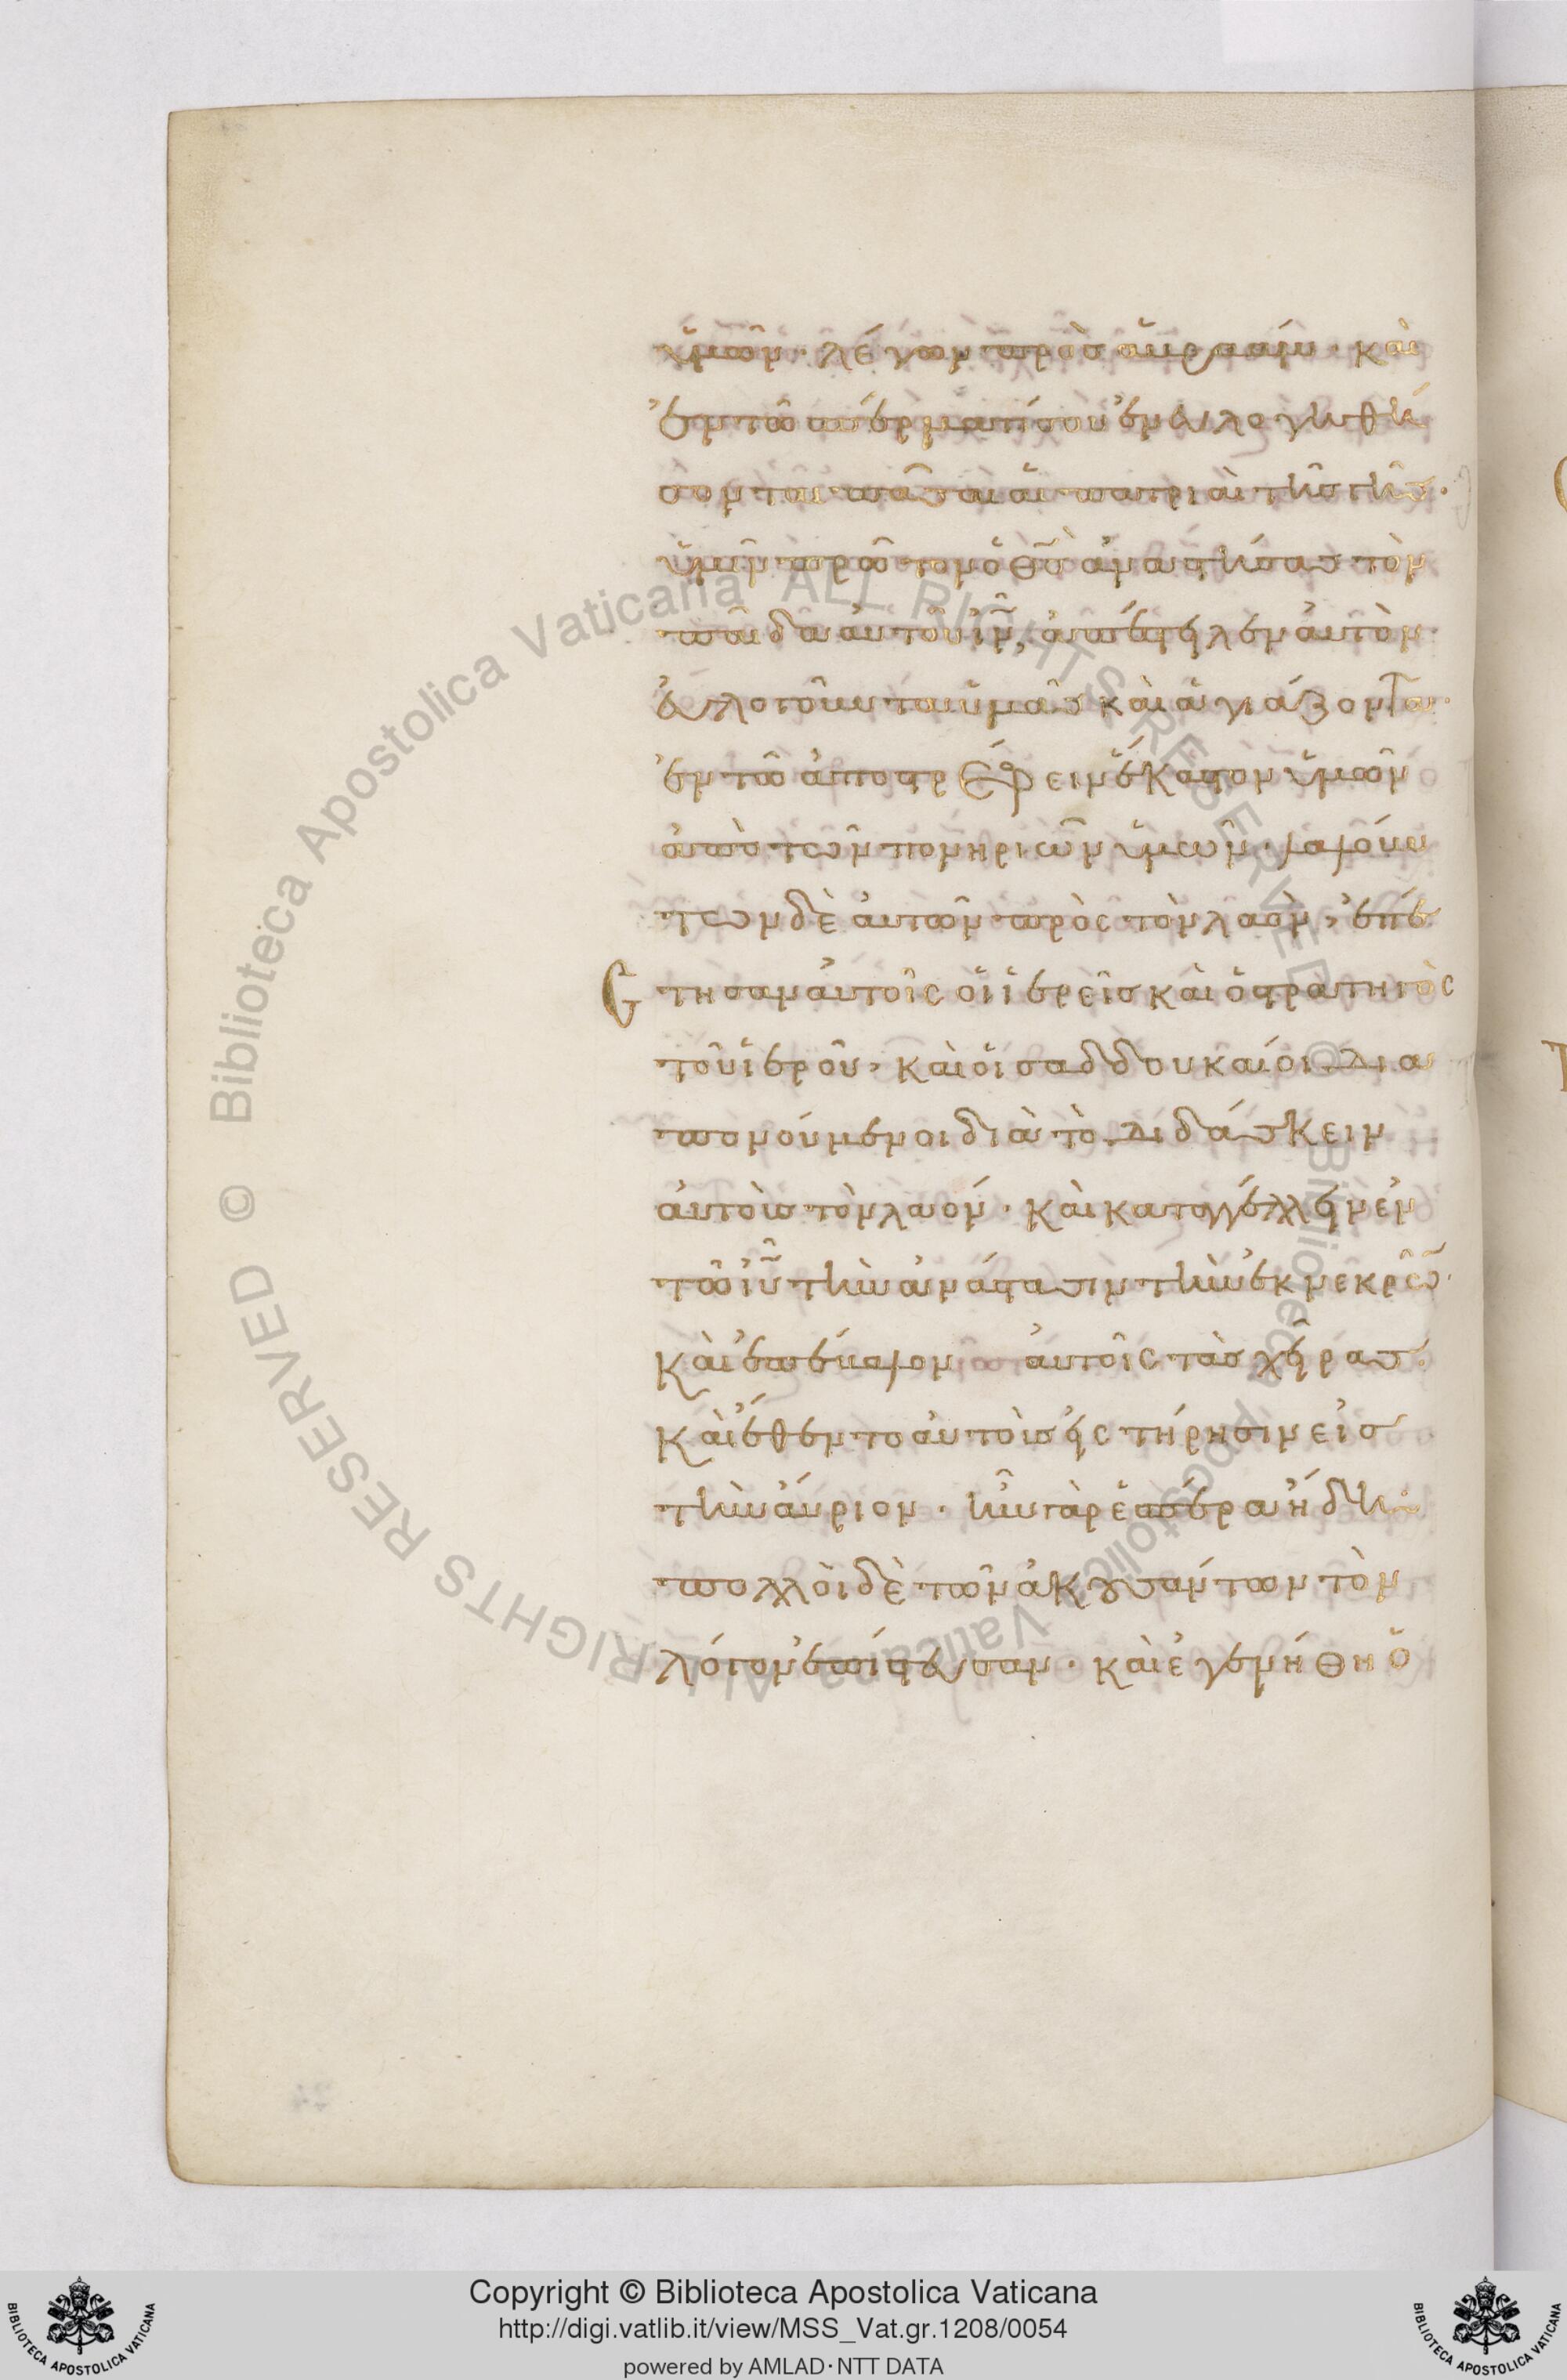 ὑμῶν· λέγων πρὸς ἀβρααμ· καὶ
ἐν τῶ σπέρματί σου ἐνευλογηθή
σονται πᾶσαι αἱ πατριαὶ τῆς γῆς·
ὑμῖν πρῶτον ὁ θς ἀναστήσας τὸν
παῖδα αὐτοῦ ιν, ἀπέστειλεν αὐτὸν
εὐλογοῦντα ὑμᾶς καὶ ἁγιάζοντα·
ἐν τῶ ἀποστρέφειν ἕκαστον ὑμῶν
ἀπὸ τῶν πονηριῶν ὑμῶν· λαλούν
των δὲ αὐτῶν πρὸς τὸν λαὸν, ἐπέ
στησαν αὐτοῖς οἱ ἱερεῖς καὶ ὁ στρατηγὸς
τοῦ ἱεροῦ, καὶ οἱ σαδδουκαίοι δια
πονούμενοι διὰ τὸ διδάσκειν
αὐτοὺς τὸν λαόν· καὶ καταγγέλλειν ἐν
τῶ ιυ τὴν ἀνάστασιν τὴν ἐκ νεκρῶ·
καὶ ἐπέβαλον αὐτοῖς τὰς χεῖρας·
καὶ ἔθεντο αὐτοὺς εἰς τήρησιν εἰς
τὴν αὔριον· ἦν γὰρ ἑσπέρα ἤδη·
πολλοὶ δὲ τῶν ἀκουσάντων τὸν
λόγον ἐπίστευσαν· καὶ ἐγενήθη ὁ
Copyright © Biblioteca Apostolica Vaticana
http://digi.vatlib.it/view/MSS_Vat.gr.1208/0054
powered by AMLAD·NTT DATA
BIBLIOTECA APOSTOLICA VATICANA
BIBLIOTECA APOSTOLICA VATICANA
Biblioteca Apostolica Vaticana ALL RIGHTS RESERVED ©
Biblioteca Apostolica Vaticana ALL RIGHTS RESERVED ©